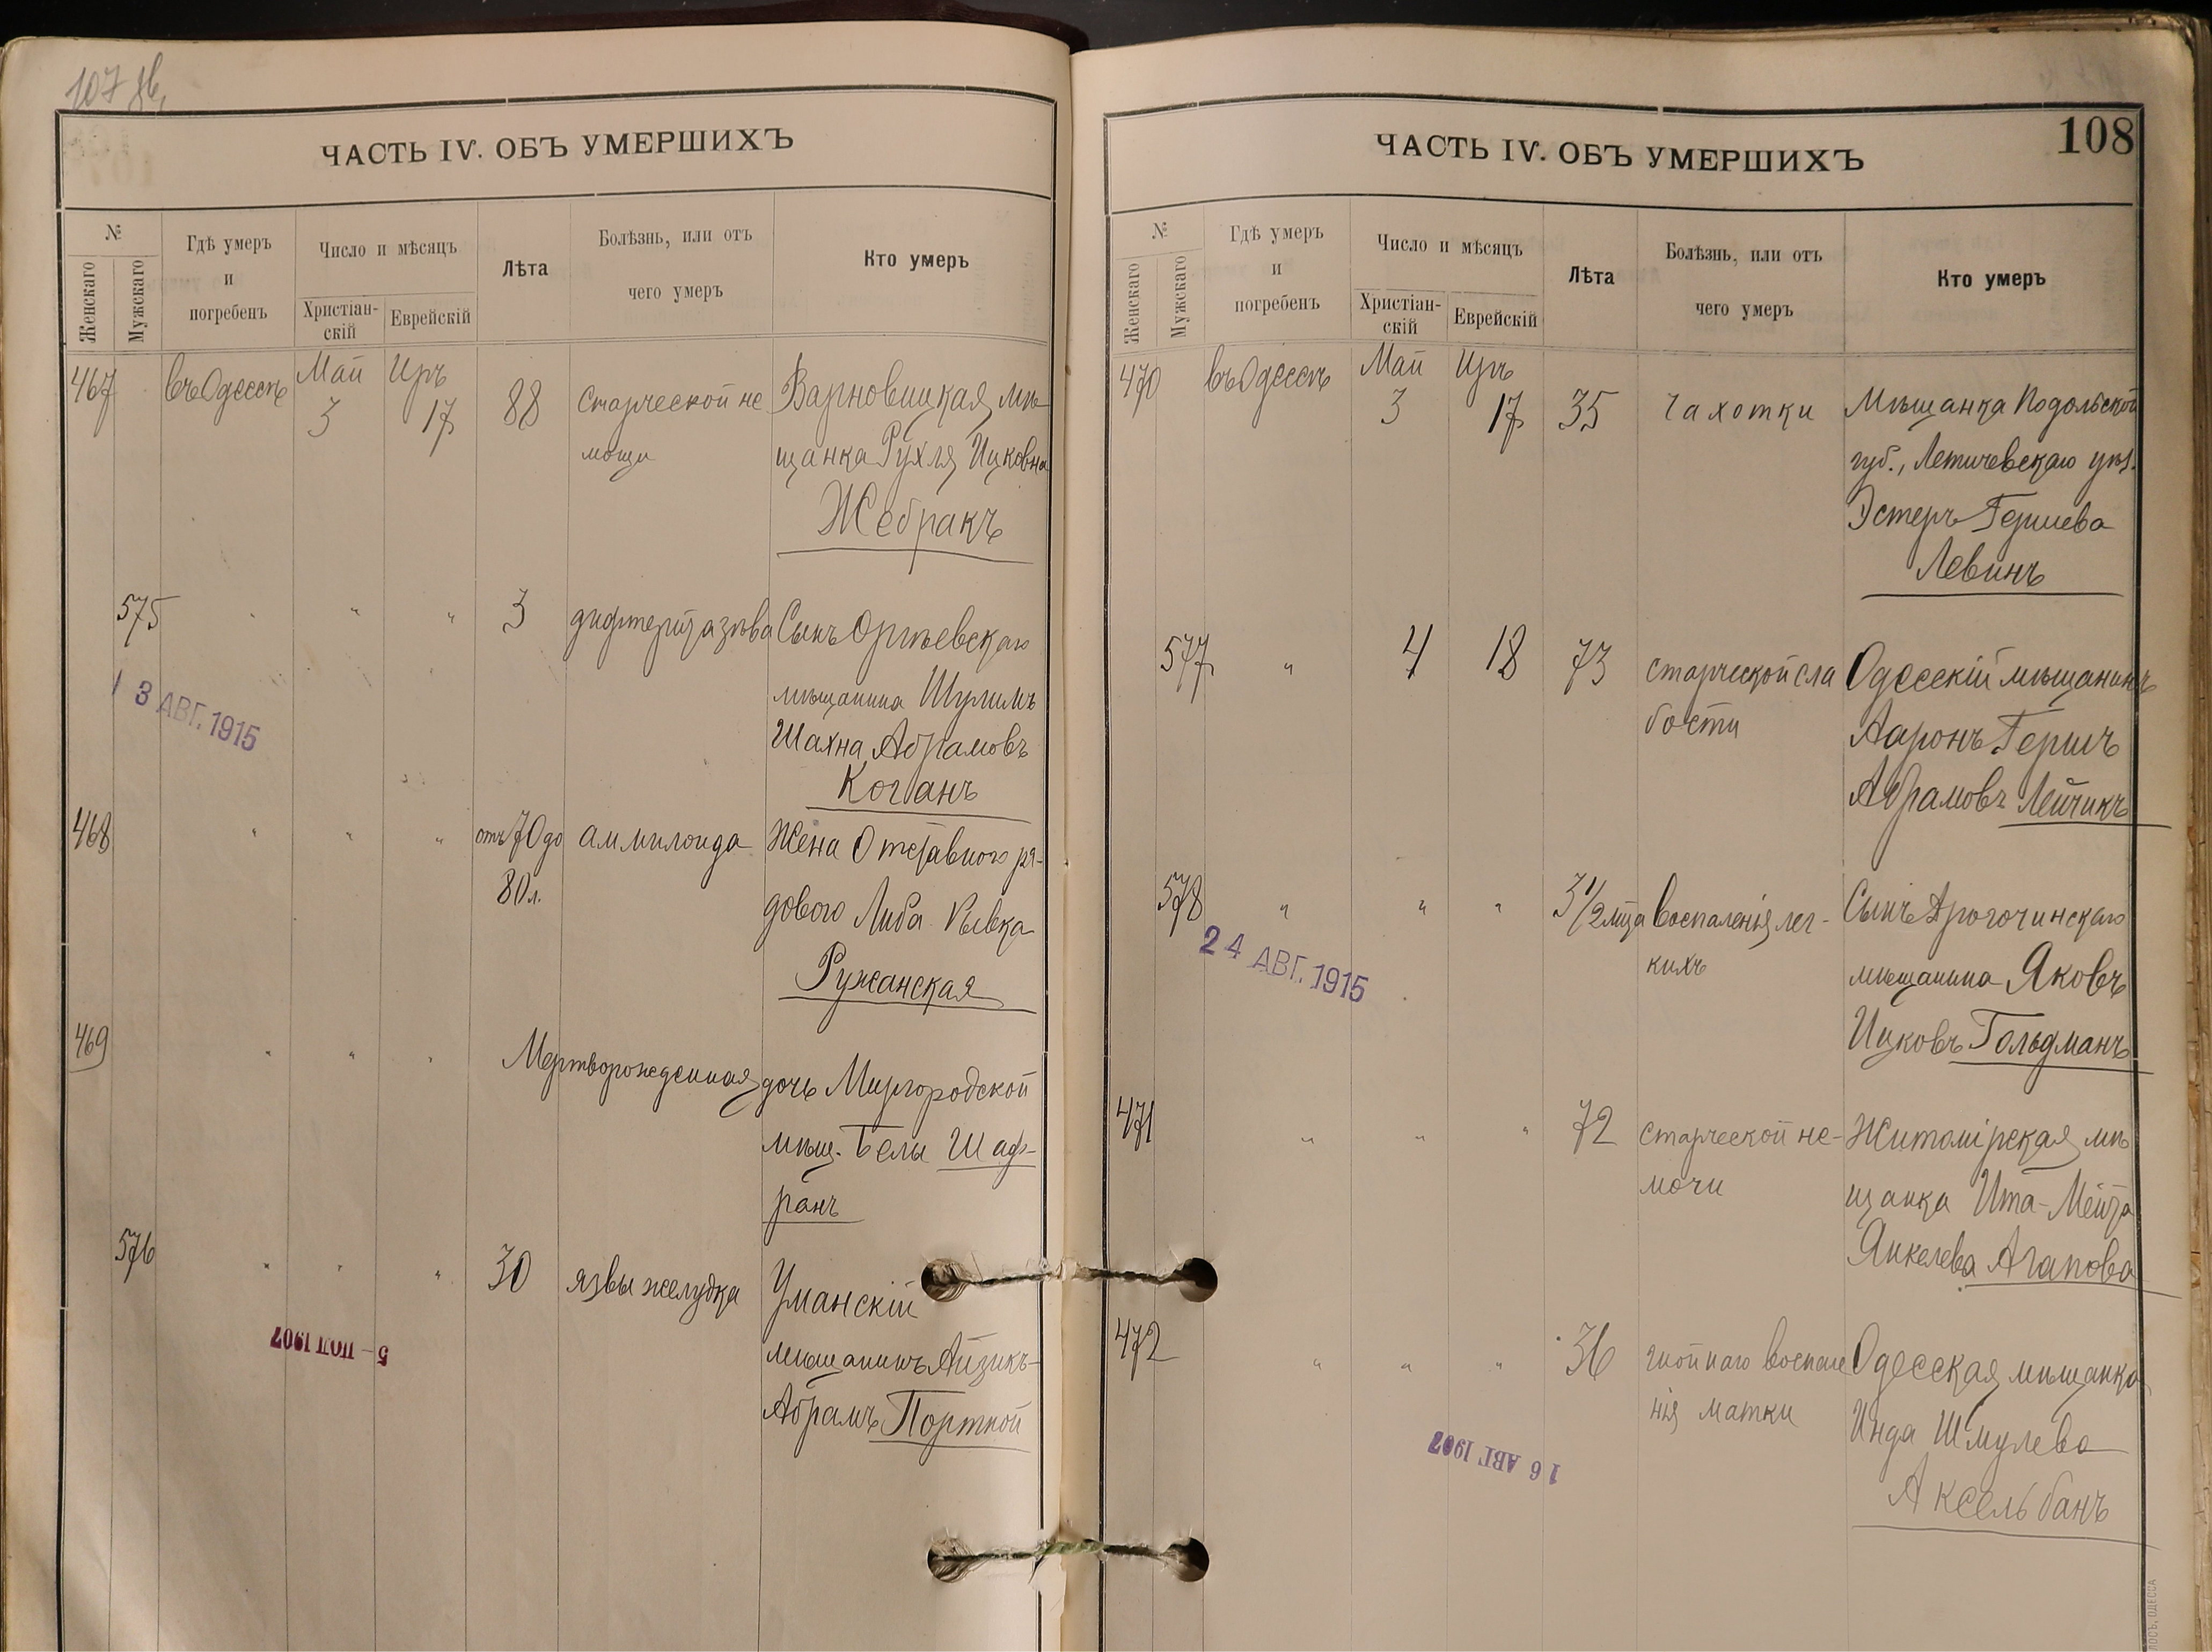 107 об.
ЧАСТЬ IV. ОБЪ УМЕРШИХЪ
№
Женскаго
Мужскаго
Гдѣ умеръ
и
погребенъ
Число и мѣсяцъ
Христіан-
скій
Еврейскій
Лѣта
Болѣзнь, или отъ
чего умеръ
Кто умеръ
467 въ Одессѣ Май 3 Иръ 17 88 старческой не Варновицкая мѣ-
мощи щанка Рухля Ицковна
Жебракъ
575 " " " 3 дифтерита зѣва Сынъ Оргѣевскаго
мѣщанина Шулимъ
Шахна Абрамовъ
Коганъ
13 АВГ. 1915
468 " " " отъ 70 до аммилоида Жена Отставного ря-
80 л. дового Либа Рывка
Ружанская
469 " " " Мертворожденная дочь Миргородской
мѣщ. Белы Шаф-
ранъ
576 " " " 30 язвы желудка Уманскій
мѣщанинъ Айзикъ-
Абрамъ Портной
5 - ІЮЛ 1907
108
ЧАСТЬ IV. ОБЪ УМЕРШИХЪ
№
Женскаго
Мужскаго
Гдѣ умеръ
и
погребенъ
Число и мѣсяцъ
Христіан-
скій
Еврейскій
Лѣта
Болѣзнь, или отъ
чего умеръ
Кто умеръ
470 въ Одессѣ Май 3 Иръ 17 35 чахотки Мѣщанка Подольской
губ., Летичевскаго уѣз.
Эстеръ Гершева
Левинъ
577 " 4 18 73 старческой сла Одесскій мѣщанинъ
бости Ааронъ Гершъ
Абрамовъ Лейчикъ
578 " " " 3 1/2 мца воспаленія лег- Сынъ
кихъ мѣщанина Яковъ
Ицковъ Гольдманъ
24 АВГ. 1915
471 " " " 72 старческой не- Житомірская мѣ
мочи щанка Ита-Мейта
Янкелева Агапова
472 " " " 36 гнойнаго воспале Одесская мѣщанка
нія матки Инда Шмулева
Аксельбанъ
16 АВГ 1907
ОДЕССА